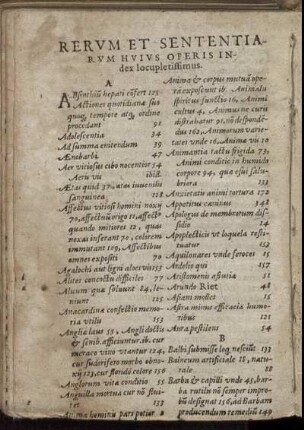 RERVM ET SENTENTIA-
RVM HVIVS OPERIS IN-
dex locupletissimus.
A
ABsenthium hepati cõfert 125
Actiones quotidianæ suo
quoq; tempore atq; ordine
procedant 91
Adolescentia 34
Ad summa enitendum 39
Ænobarbi 47
Aer vitiosus cibo nocentior 54
Aeris vis ibid.
Ætas quid 37, ætas iuuenilis
sanguinea 118
Affectus vitiosi homini noxij
70, affectuũ origo 11, affectꝰ
quando mitiores 12, quas
noxas inferant 70, colorem
immutant 109, Affectibus
omnes expositi 70
Agalochi aut ligni aloes vis 153
Aluus quæ soluunt 84, le-
niunt 125
Anacardina confectio memo-
riæ vtilis 153
Angliæ laus 55, Angli docti
& senib. afficiuntur. ib. cur
meraco vino vtantur 124,
cur suderifero morbo obno-
xij 123, cur floridi colore 156
Anglorum vitæ conditio 55
Anguilla mortua cur nõ flui-
tet 153
Animæ hominũ pars potior 2
Animæ & corpus mutuã ope-
rã exposcunt ib. Animalis
spiritus functio 16, Animi
cultus 4, Animus ne curis
distrahatur 95, nõ desponde-
dus 162, Animorum varie-
tates vnde 16, Animæ vis 10
Animantia tactu frigida 73,
Animi conditio in humido
corpore 94, quæ ei si salu-
briora 133
Anxietatis animi tortura 172
Appetitus caninus 148
Apologus de membrorum dis-
sidio 14
Apoplecticis vt loquela resti-
tuatur 153
Aquilonares vnde feroces 15
Ardelio quis 157
Aristomenis astutia 11
Arundo Riet 48
Asiani molles 15
Astra minus efficacia humo-
ribus 121
Aura pestilens 54
B
Balbi submisse loq nesciũt 133
Balneum artificiale 88, natu-
rale 88
Barba & capilli vnde 45, bar-
ba rutila nõ semper impro-
bũ designat 256, ad Barbam
producendum remedia 149